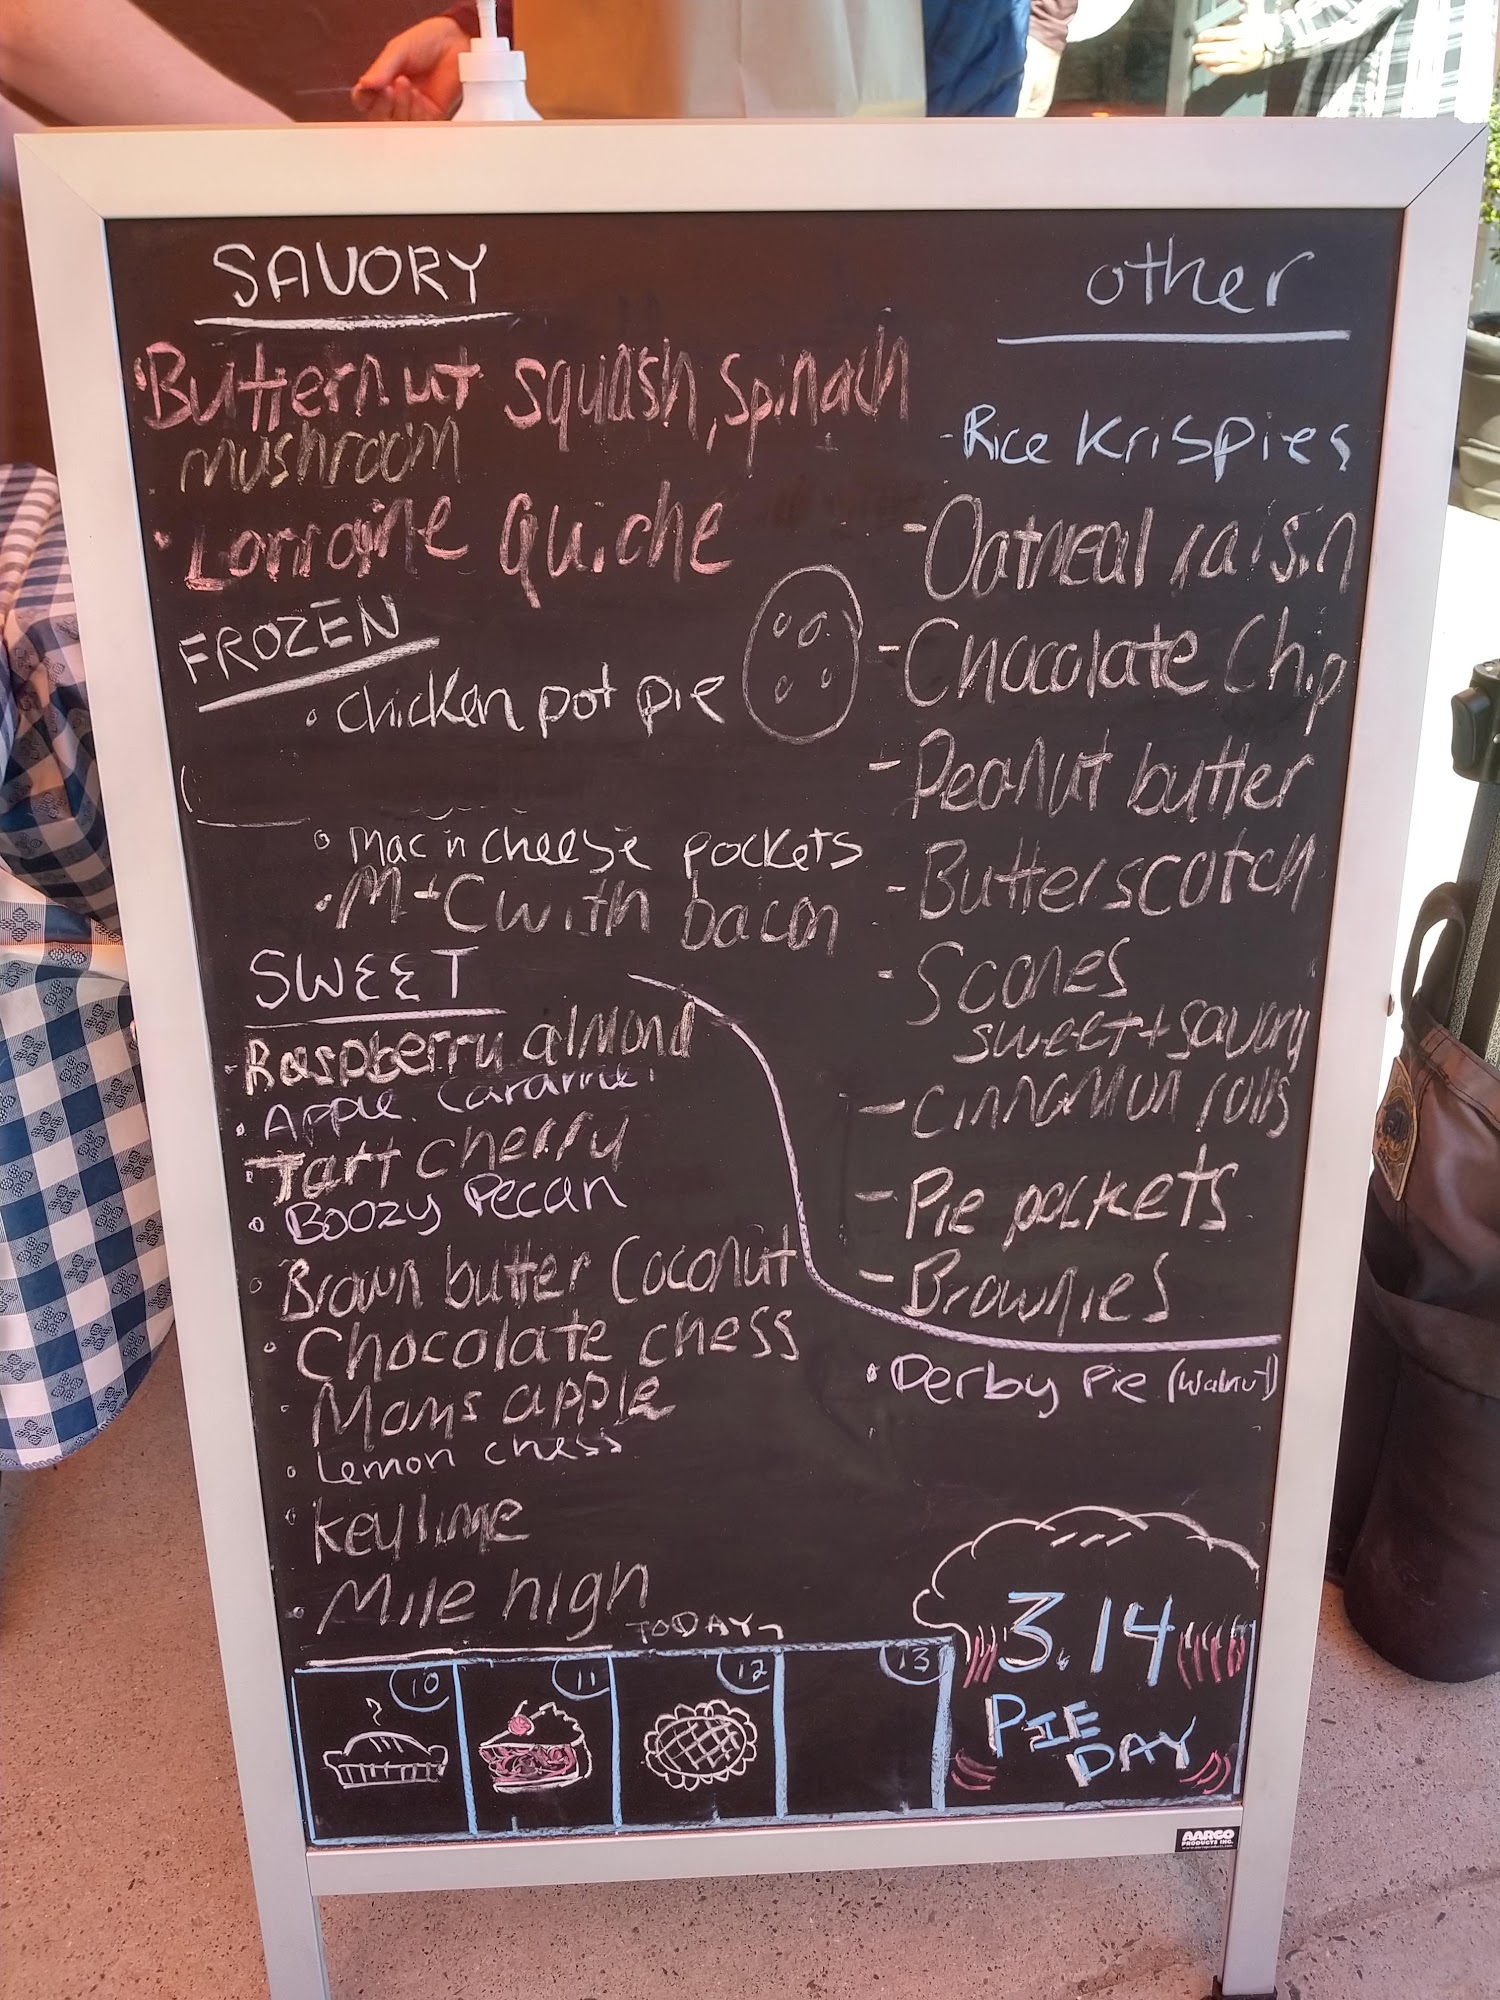 SAVORY
• Butternut squash, spinach
mushroom
• Lorraine Quiche
FROZEN
• chicken pot pie
• mac n cheese pockets
• M+C with bacon
SWEET
Raspberry almond
• Apple Caramel
• Tart cherry
• Boozy Pecan
• Brown butter Coconut
• Chocolate chess
• Moms apple
• Lemon chess
• Key lime
• Mile high
other
- Rice Krispies
- Oatmeal raisin
- Chocolate Chip
- Peanut butter
- Butterscotch
- Scones
sweet + savory
- cinnamon rolls
- Pie pockets
- Brownies
• Derby Pie (walnut)
TODAY
10
11
12
13
3.14
PIE
DAY
AARCO
PRODUCTS INC.